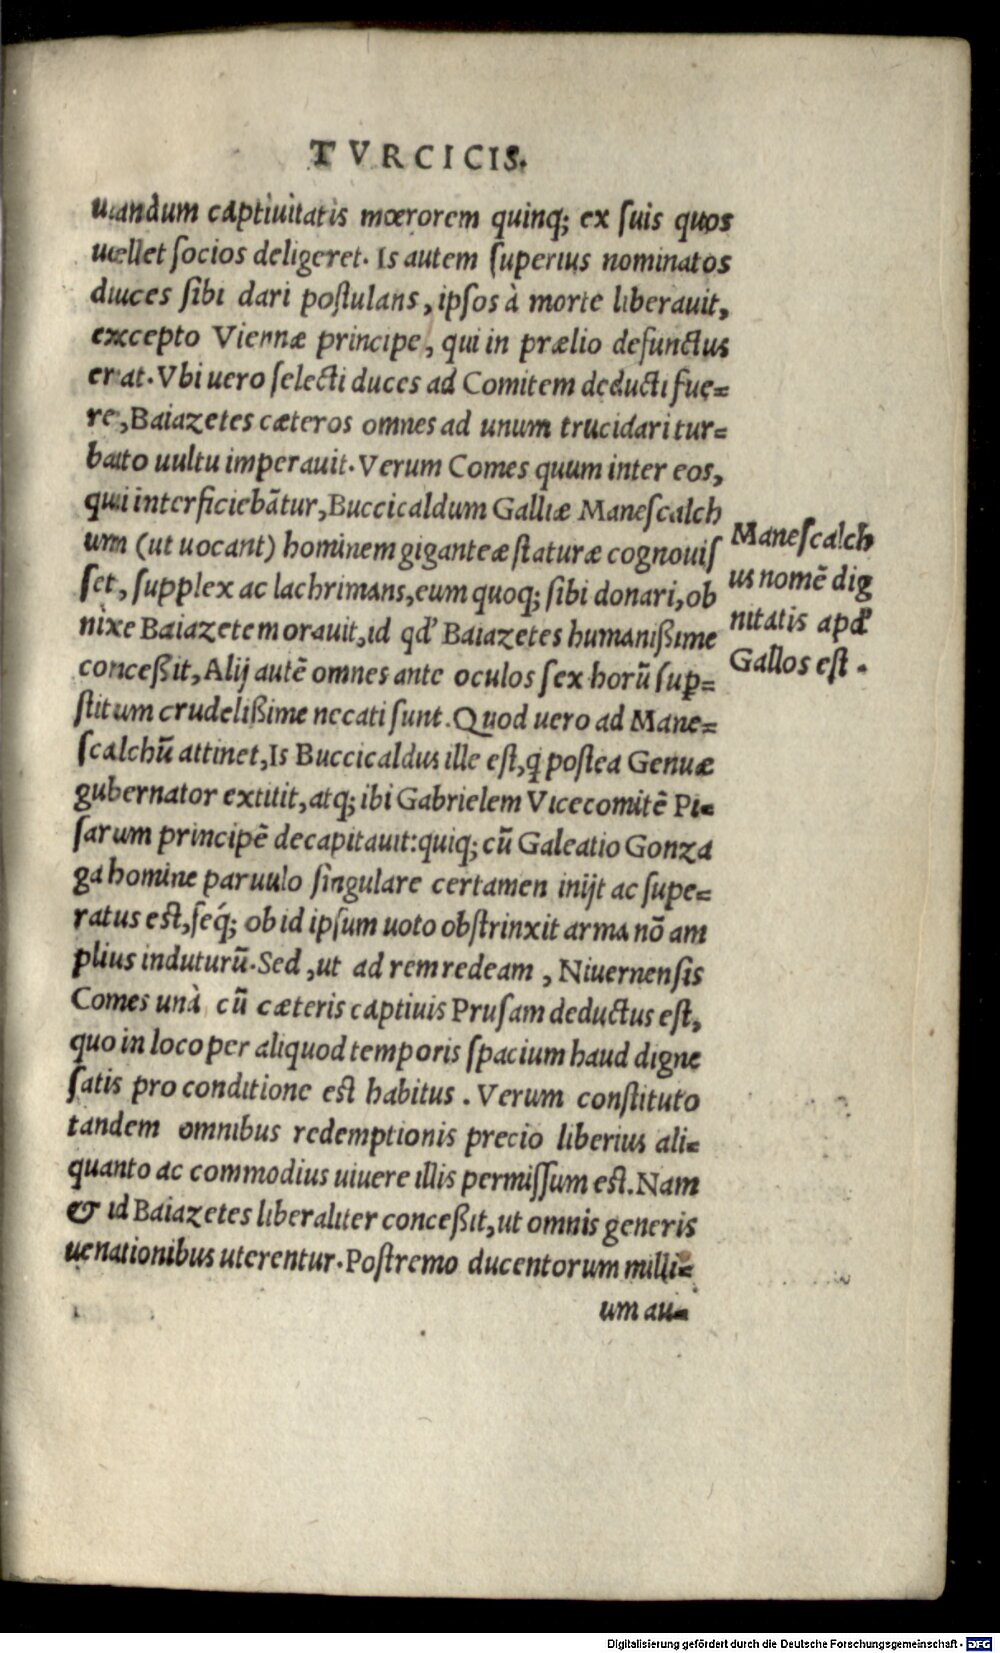 TVRCICIS.
uandum captiuitatis mœrorem quinq; ex ſuis quos
uellet ſocios deligeret. Is autem ſuperius nominatos
duces ſibi dari poſtulans, ipſos à morte liberauit,
excepto Viennæ principe, qui in prælio defunctus
erat. Vbi uero ſelecti duces ad Comitem deducti fue=
re, Baiazetes cæteros omnes ad unum trucidari tur=
bato uultu imperauit. Verum Comes quum inter eos,
qui interficiebãtur, Buccicaldum Galliæ Maneſcalch
um (ut uocant) hominem giganteæ ſtaturæ cognouiſ
ſet, ſupplex ac lachrimans, eum quoq; ſibi donari, ob
nixe Baiazetem orauit, id qđ Baiazetes humanißime
conceßit, Alij autẽ omnes ante oculos ſex horũ ſuꝑ=
ſtitum crudelißime necati ſunt. Quod uero ad Mane=
ſcalchũ attinet, Is Buccicaldus ille eſt, q̃ poſtea Genuæ
gubernator extitit, atq; ibi Gabrielem Vicecomitẽ Pi=
ſarum principẽ decapitauit: quiq; cũ Galeatio Gonza
ga homine paruulo ſingulare certamen inijt ac ſupe=
ratus eſt, ſeq́; ob id ipſum uoto obſtrinxit arma nõ am
plius induturũ. Sed, ut ad rem redeam, Niuernenſis
Comes unà cũ cæteris captiuis Pruſam deductus eſt,
quo in loco per aliquod temporis ſpacium haud digne
ſatis pro conditione eſt habitus. Verum conſtituto
tandem omnibus redemptionis precio liberius ali=
quanto ac commodius uiuere illis permiſſum eſt. Nam
& id Baiazetes liberaliter conceßit, ut omnis generis
uenationibus uterentur. Poſtremo ducentorum milli=
um au=
Maneſcalch
us nomẽ dig
nitatis apđ
Gallos eſt.
Digitalisierung gefördert durch die Deutsche Forschungsgemeinschaft - DFG